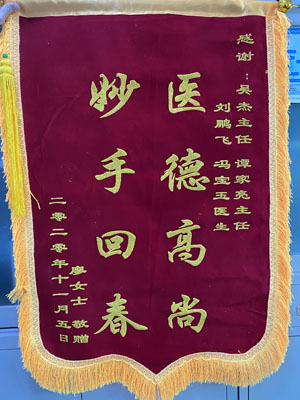 感谢：吴杰主任 谭家亮主任
刘鹏飞 冯宝玉医生
医德高尚
妙手回春
廖女士 敬赠
二零二零年十一月五日